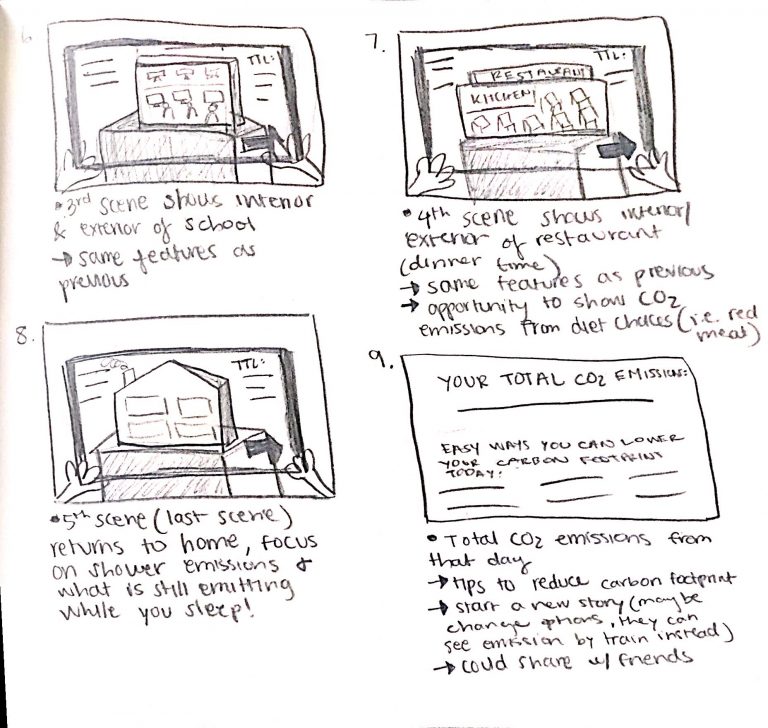 6
TTL:
• 3rd scene shows interior
& exterior of school
→ same features as
previous
7.
TTL:
RESTAURANT
KITCHEN
• 4th scene shows interior/
exterior of restaurant
(dinner time)
→ same features as previous
→ opportunity to show CO2
emissions from diet choices (i.e. red
meat)
8.
CO2
TTL:
• 5th scene (last scene)
returns to home, focus
on shower emissions &
what is still emitting
while you sleep!
9.
YOUR TOTAL CO2 EMISSIONS:
EASY WAYS YOU CAN LOWER
YOUR CARBON FOOTPRINT
TODAY:
• Total CO2 emissions from
that day
→ tips to reduce carbon footprint
→ start a new story (maybe
change options, they can
see emission by train instead)
→ could share w/ friends